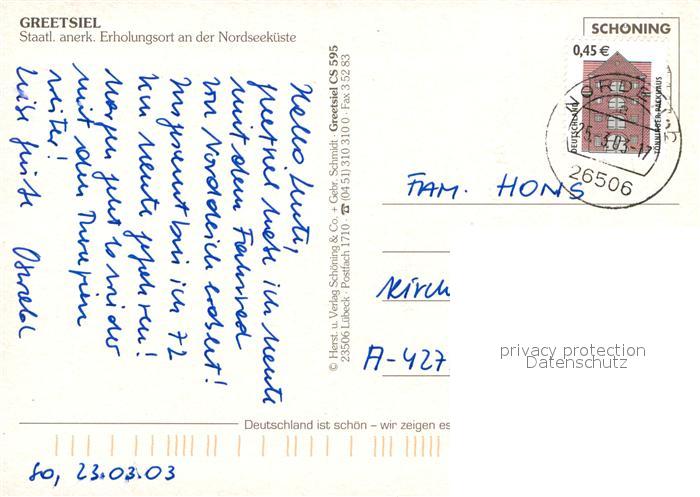 GREETSIEL
Staatl. anerk. Erholungsort an der Nordseeküste
Hallo Leute,
habe ich heute
mit dem Fahrrad
von Norddeich erobert!
Insgesamt bin ich 72
km heute gefahren!
Morgen geht es wieder
mit dem Turnen
weiter!
Liebe Grüße Oswald
So, 23.03.03
© Herst. u. Verlag Schöning & Co. + Gebr. Schmidt · Greetsiel CS 595
23506 Lübeck · Postfach 1710 · ☎ (04 51) 310 310 0 · Fax 3 52 83
Deutschland ist schön – wir zeigen es
SCHÖNING
0,45 €
DEUTSCHLAND
TÖNNINGER PACKHAUS
NORDEN
25.3.03-17
26506
FAM. HONS
Kirch
A-427
privacy protection
Datenschutz